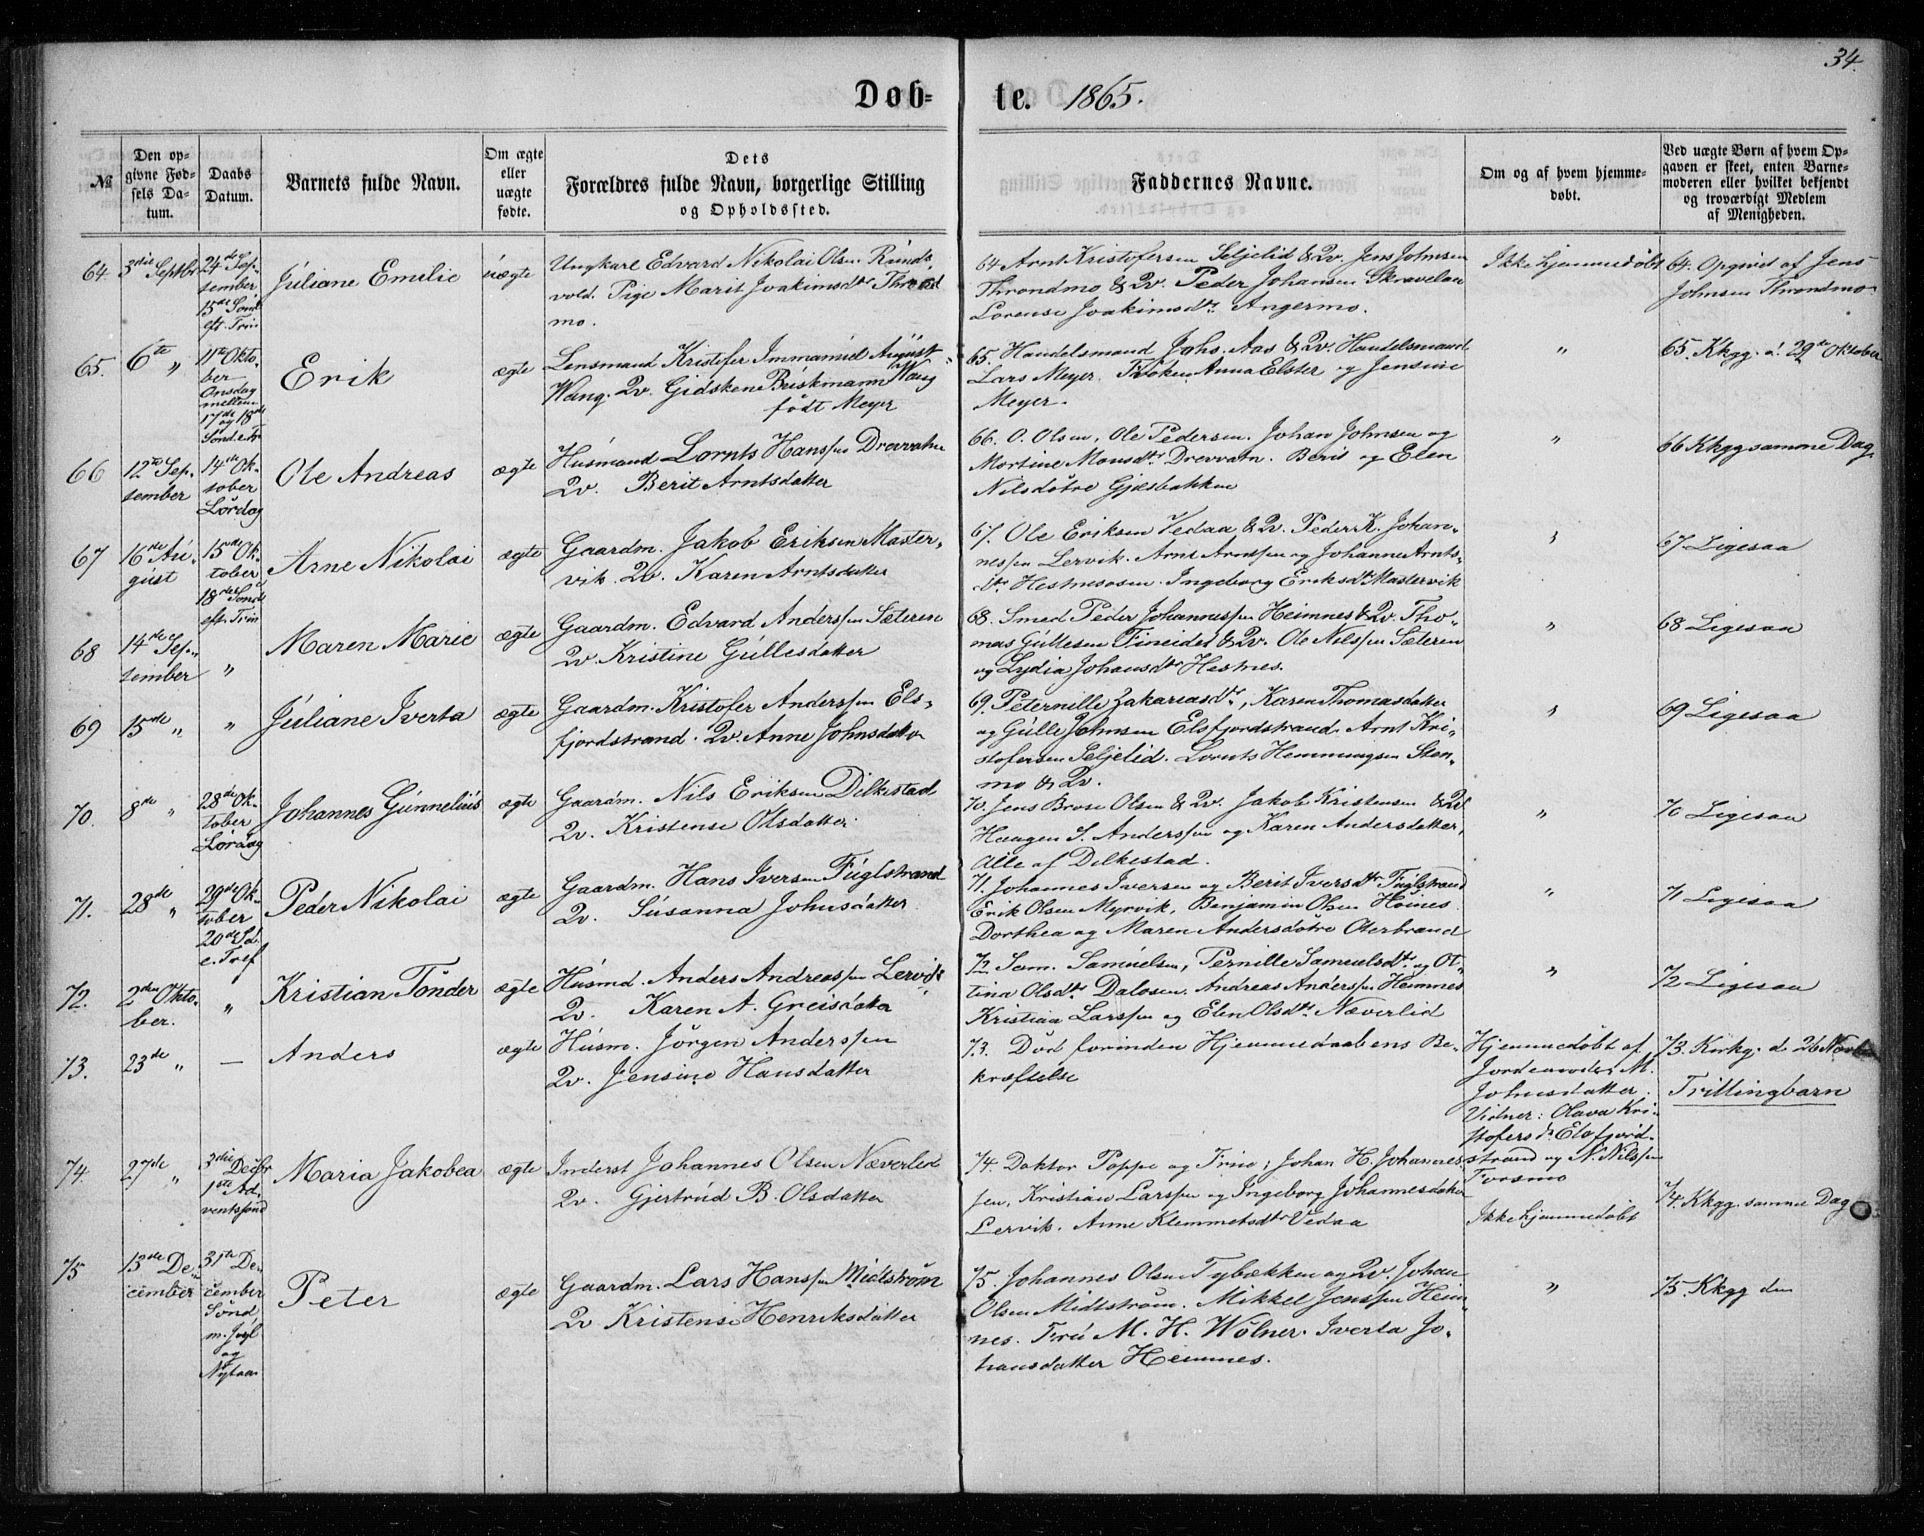 34.
Døb=
te. 1865.
№
Den op=
givne Fød=
sels Da=
tum.
Daabs
Datum.
Barnets fulde Navn.
Om ægte
eller
uægte
fødte.
Dets
Forældres fulde Navn, borgerlige Stilling
og Opholdssted.
Faddernes Navne.
Om og af hvem hjemme=
døbt.
Ved uægte Børn af hvem Op=
gaven er skeet, enten Barne=
moderen eller hvilket bekjendt
og troværdigt Medlem
af Menigheden.
64.
3die Septbr
24de Sep-
tember
15de Sönd
eft. Trin
Juliane Emilie
uægte
Ungkarl Edvard Nikolai Olsen Runds,
vold. Pige Marit Joakimsdtr Thrond
mo.
64 Arnt Kristofersen Seljelid & Qv. Jens Johnsen
Throndmo & Qv. Peder Johansen Skravelan
Lorense Joakimsdtr Angermo.
Ikke hjemmedöbt
64. Opgivet af Jens
Johnsen Throndmo
65.
6te "
11te Okto-
ber
Onsdag
mellem
17de og 18de
Sönd. e. Tr
Erik
ægte
Lensmand Kristofer Immanuel August
Wang. Qv. Gidskene Briskmann Wang
født Meyer
65. Handelsmand Johs. Aas & Qv. Handelsmand
Lars Meyer. Frøken Anna Elster og Jensine
Meyer.
"
65. Kkgg. d. 29de Oktober
66
12te Sep-
tember
14de Ok-
tober
Lørdag
Ole Andreas
ægte
Husmand Lornts Hanssen Drevvatn
Qv. Berit Arntsdatter
66. O. Olsen, Ole Pedersen. Johan Johnsen og
Mortine Monsdtr Drevvatn. Beris og Elen
Nilsdøtre Gjæsbakken
"
66 Kkgg samme Dag
67
16de Au-
gust
15de Ok-
tober
18de Sönd
eft. Trin
Arne Nikolai
ægte
Gaardm. Jakob Eriksen Master-
vik. Qv. Karen Arntsdatter
67. Ole Eriksen Vedaa & Qv. Peder K. Johan-
nessen Lervik. Arnt Arntsen og Johanne Arnts-
dtr Hestnesosen. Ingeborg Eriksdtr Mastervik
67 Ligesaa
68
14de Sep-
tember
"
Maren Marie
ægte
Gaardm. Edvard Anderssen Sæteren
Qv. Kristine Gullesdatter
68. Smed Peder Johannessen Heimnes & Qv. Tho-
mas Gullesen Fineidet & Qv. Ole Nilssen Sæteren
og Lydia Johansdtr Hestnes.
"
68 Ligesaa
69
15de "
"
Juliane Iverta
ægte
Gaardm. Kristofer Anderssen Els-
fjordstrand. Qv. Anne Johnsdatter
69. Peternille Zakariasdtr, Karen Thomasdatter
og Gulle Johnsen Elsfjordstrand. Arnt Kri-
stofersen Seljelid. Lornts Hemmingsen Sten-
mo & Qv.
69 Ligesaa
70.
8de "
28de Ok-
tober
Lördag
Johannes Gunnelius
ægte
Gaardm. Nils Eriksen Dilkestad
Qv. Kristense Olsdatter
70. Jens Brose Olsen & Qv. Jakob Kristensen & Qv
Haagen S. Anderssen og Karen Andersdatter,
Alle af Dilkestad.
"
70 Ligesaa
71.
28de "
29de Ok-
tober
20de Sö
e. Tref
Peder Nikolai
ægte
Gaardm. Hans Iversen Fuglstrand
Qv. Susanna Johnsdatter
71. Johannes Iversen og Berit Iversdtr Fuglstrand
Erik Olsen Myrvik, Benjamin Olsen Höines.
Dorthea og Maren Andersdøtre Oterbrand
"
71 Ligesaa
72.
2den Okto-
ber.
"
Kristian Tönder
ægte
Husmd. Anders Andreassen Lervik
Qv. Karen A. Greisdatter
72. Sam. Samuelsen, Pernille Samuelsdtr og Ot-
tina Olsdtr Dalosen. Andreas Anderssen Hemnes
Kristian Larssen og Elen Olsdtr Næverlid
"
72 Ligesaa
73.
23de "
—
Anders
ægte
Husm. Jörgen Anderssen
Qv. Jensine Hansdatter
73. Død forinden Hjemmedaabens Be-
kræftelse
Hjemmedöbt af
Jordemoder M.
Johnsdatter.
Vidner: Olava Kri-
stofersdtr Elsfjord-
strand og N. Nilssen
Forsmo
73. Kirkg. d. 26 Novbr
Trillingbarn
74.
27de "
3die Decbr
1ste Ad-
ventssönd
Maria Jakobea
ægte
Inderst Johannes Olsen Næverlid
Qv. Gjertrud B. Olsdatter
74. Doktor Poppe og Frue; Johan H. Johannes-
sen, Kristian Larssen og Ingeborg Johannesdatter
Lervik. Anne Klemmetsdtr Vedaa
Ikke hjemmedöbt
74. Kkgg. samme Dag
75
13de De-
cember
31te De-
cember
Sönd
m. Jul
og
Nytaar
Peter
ægte
Gaardm. Lars Hanssen Midtström
Qv Kristense Henriksdatter
75. Johannes Olsen Tybækken og Qv. Johan
Olsen Midtström. Mikkel Jenssen Heim-
nes. Fru M. H. Wölner. Iverta Jo-
hansdatter Hemnes.
"
75. Kkgg den